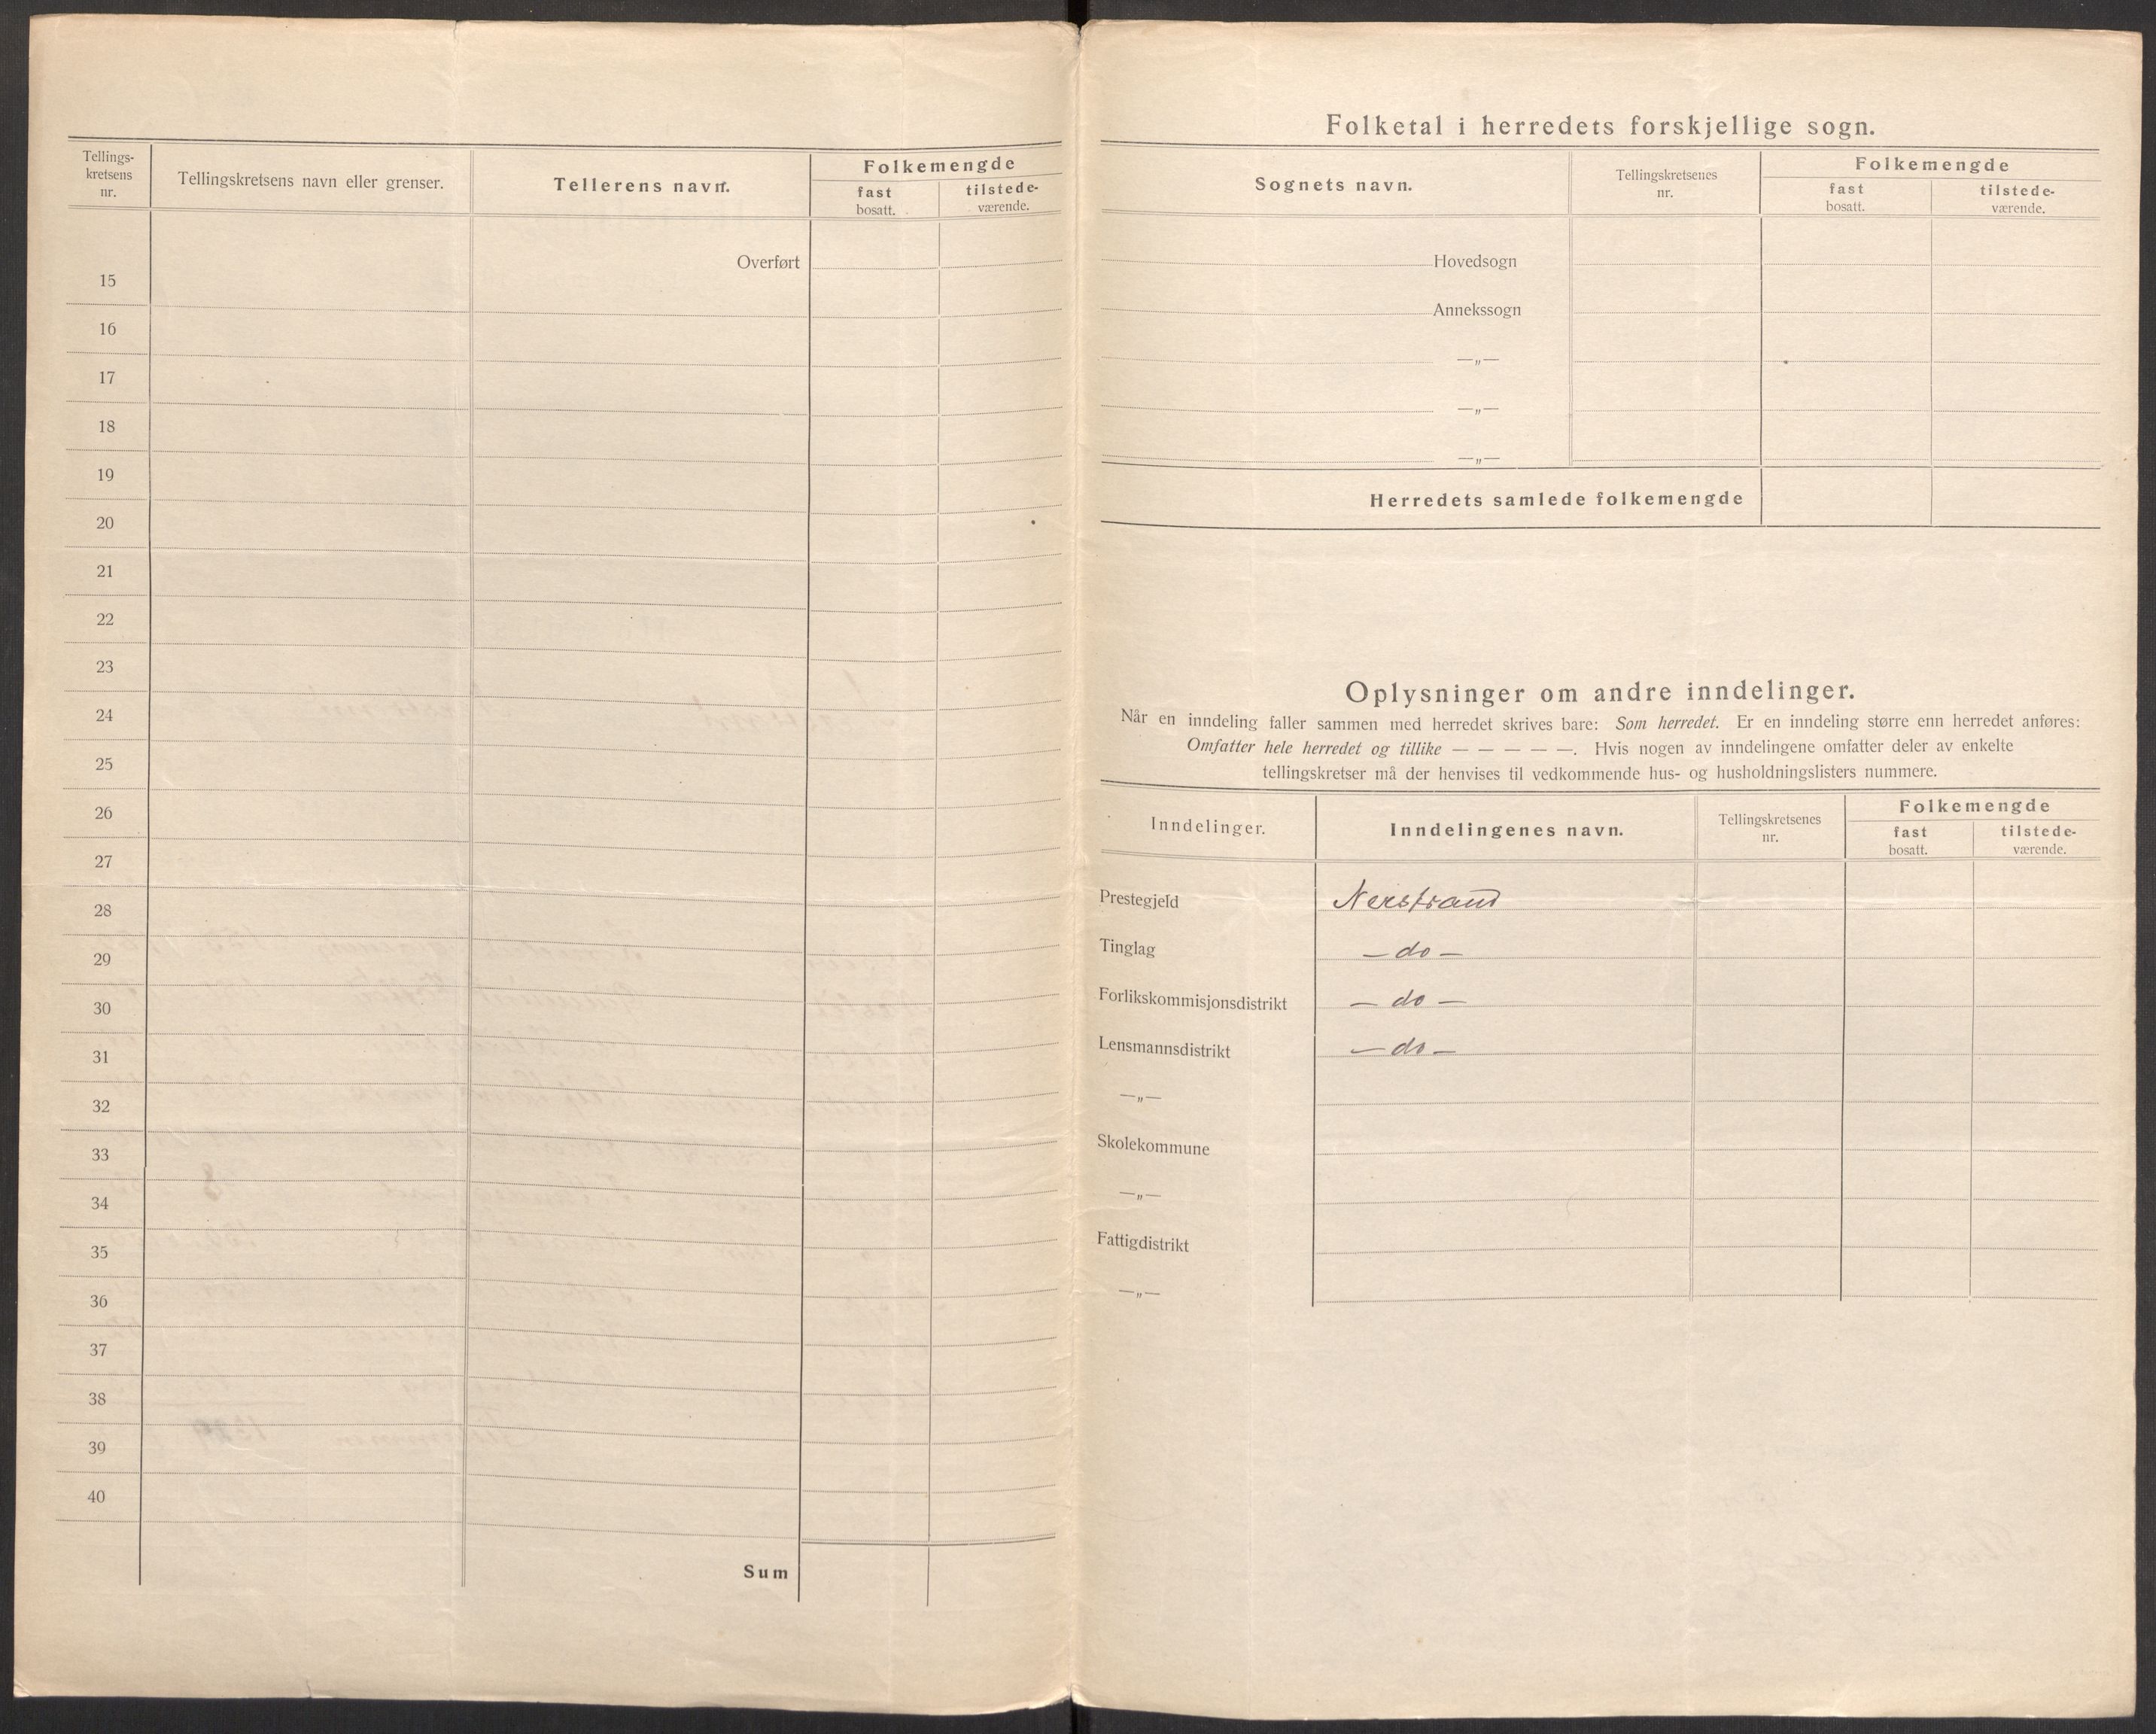 Tellings-
kretsens
nr.
Tellingskretsens navn eller grenser.
Tellerens navn.
Folkemengde
fast
bosatt.
tilstede-
værende.
Overført
15
16
17
18
19
20
21
22
23
24
25
26
27
28
29
30
31
32
33
34
35
36
37
38
39
40
Sum
Folketal i herredets forskjellige sogn.
Sognets navn.
Tellingskretsenes
nr.
Folkemengde
fast
bosatt.
tilstede-
værende.
Hovedsogn
Annekssogn
—„—
—„—
—„—
Herredets samlede folkemengde
Oplysninger om andre inndelinger.
Når en inndeling faller sammen med herredet skrives bare: Som herredet. Er en inndeling større enn herredet anføres:
Omfatter hele herredet og tillike — — — — —. Hvis nogen av inndelingene omfatter deler av enkelte
tellingskretser må der henvises til vedkommende hus- og husholdningslisters nummere.
Inndelinger.
Inndelingenes navn.
Tellingskretsenes
nr.
Folkemengde
fast
bosatt.
tilstede-
værende.
Prestegjeld Nerstrand
Tinglag — do —
Forlikskommisjonsdistrikt — do —
Lensmannsdistrikt — do —
—„—
Skolekommune
—„—
Fattigdistrikt
—„—